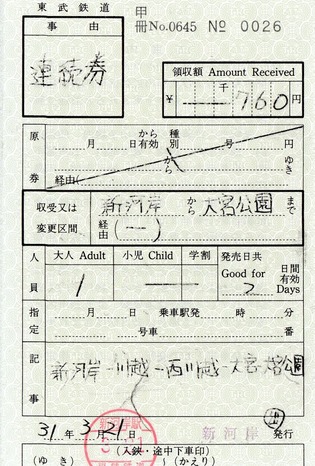 東武鉄道
甲
冊No.0645 № 0026
事由
連続券
領収額 Amount Received
千
¥ 760円
原券
から 種
月 日有効 別 号 円
から ゆき
経由(
収受又は
変更区間
新河岸から大宮公園まで
経由(一)
人員
大人 Adult 小児 Child 学割 発売日共
1 Good for 2 日間有効 Days
指定
月 日 乗車駅発 時 分
号車 番
記事
新河岸-川越-西川越-大宮-大宮公園
31年3月21日 新河岸 発行
(入鋏・途中下車印)
(ゆき) (かえり)